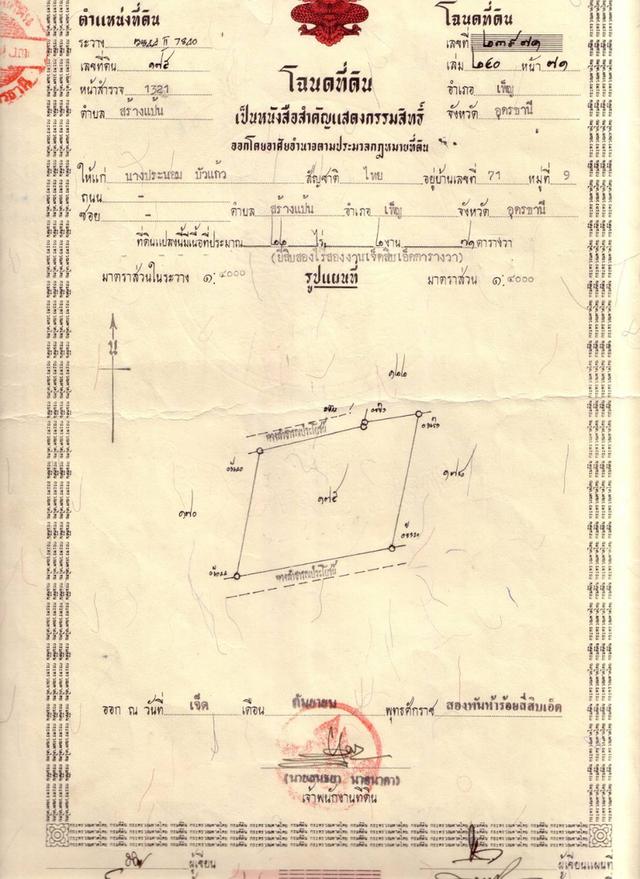 ตำแหน่งที่ดิน
โฉนดที่ดิน
ระวาง II 7840
เลขที่ ๒๓๕๗๑
เลขที่ดิน ๑๗๕
เล่ม ๒๔๐ หน้า ๗๑
หน้าสำรวจ 1321
อำเภอ เพ็ญ
ตำบล สร้างแป้น
จังหวัด อุดรธานี
โฉนดที่ดิน
เป็นหนังสือสำคัญแสดงกรรมสิทธิ์
ออกโดยอาศัยอำนาจตามประมวลกฎหมายที่ดิน
ให้แก่ นางประนอม บัวแก้ว สัญชาติ ไทย อยู่บ้านเลขที่ 71 หมู่ที่ 9
ถนน -
ซอย - ตำบล สร้างแป้น อำเภอ เพ็ญ จังหวัด อุดรธานี
ที่ดินแปลงนี้มีเนื้อที่ประมาณ ๒๒ ไร่ ๒ งาน ๗๑ ตารางวา
(ยี่สิบสองไร่สองงานเจ็ดสิบเอ็ดตารางวา)
มาตราส่วนในระวาง ๑:๔๐๐๐ รูปแผนที่ มาตราส่วน ๑:๔๐๐๐
น
๑๒๒
ทางสาธารณประโยชน์
๑๗๐
๑๗๕
๑๗๔
ทางสาธารณประโยชน์
ออก ณ วันที่ เจ็ด เดือน กันยายน พุทธศักราช สองพันห้าร้อยสี่สิบเอ็ด
เจ้าพนักงานที่ดิน
ผู้เขียน
ผู้เขียนแผนที่